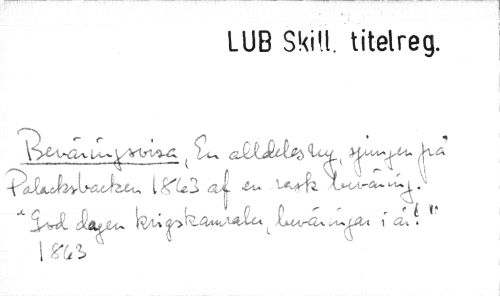 LUB Skill. titelreg.
Beväringsvisa, En alldeles ny, sjungen på
Polacksbacken 1863 af en rask beväring.
"God dagen krigskamrater, beväringar i år!"
1863